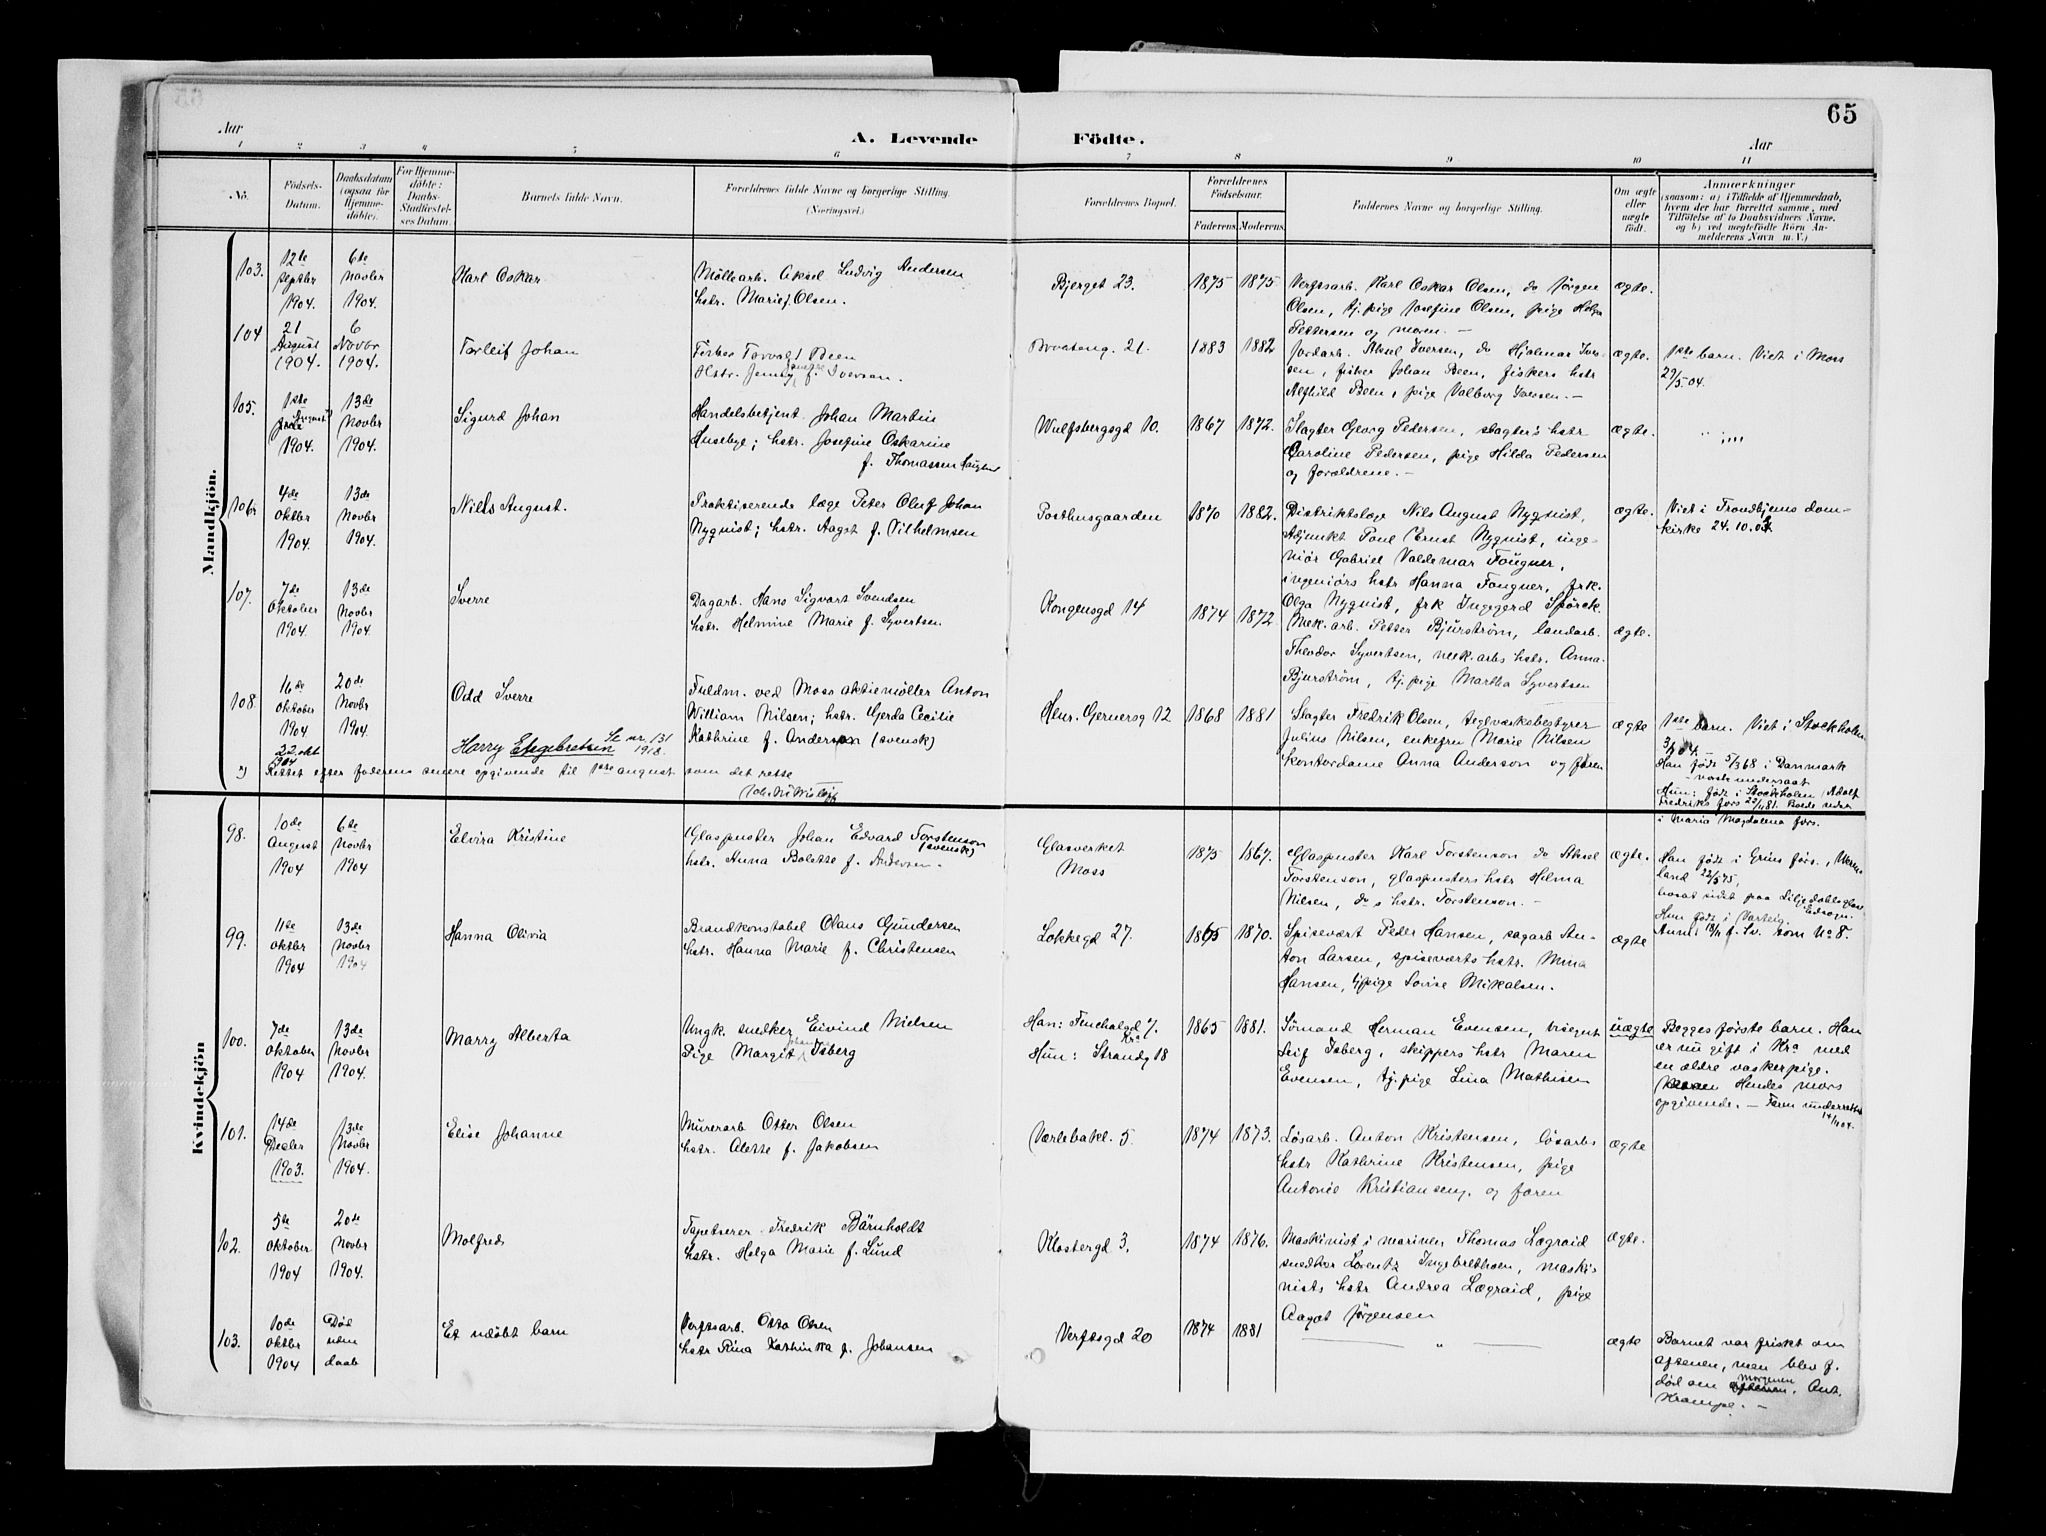 65
Aar
A. Levende
Födte.
Aar
1 2 3 4 5 6 7 8 9 10 11
No.
Födsels-
Datum.
Daabsdatum
(ogsaa for
Hjemme-
döbte).
For Hjemme-
döbte:
Daabs-
Stadfæstel-
ses Datum.
Barnets fulde Navn.
Forældrenes fulde Navne og borgerlige Stilling.
(Næringsvei.)
Forældrenes Bopæl.
Forældrenes
Födselsaar.
Faderens. Moderens.
Faddernes Navne og borgerlige Stilling.
Om ægte
eller
uægte
födt.
Anmærkninger
(saasom: a) i Tilfælde af Hjemmedaab,
hvem der har forrettet samme, med
Tilföielse af to Daabsvidners Navne.
og b) ved uægtefödte Börn An-
melderens Navn m. V.)
Mandkjön.
103.
12te
septbr
1904.
6te
novbr
1904.
Karl Oskar
Möllearb. Aksel Ludvig Andersen
hstr. Marie f. Olsen.
Bjerget 23.
1875 1875
Verftsarb. Karl Oskar Olsen, do Jørgen
Olsen, tj. pige Josefine Olsen, pige Helga
Pettersen og moren. –
ægte.
104
21
August
1904.
6
Novbr
1904.
Torleif Johan
Been
Hstr. Jenny f. Iversen.
21.
1883 1882
Jordarb. Aksel Iversen, do Hjalmar Iver-
sen, fisker Johan Been, fiskers hstr
Alfhild Been, pige Valborg Iversen. –
ægte.
1ste barn. Viet i Moss
29/5.04.
105.
1ste
August
1904.
13de
Novbr
1904.
Sigurd Johan
Handelsbetjent Johan Martin
Husebye; hstr. Josefine Oskarine
f. Thomassen Haugland
Wulfsbergsgd 10.
1867 1872.
Slagter Georg Pedersen, slagter's hstr
Caroline Pedersen, pige Hilda Pedersen
og forældrene. –
ægte.
106.
4de
oktbr
1904.
13de
Novbr
1904.
Nills August.
Praktiserende læge Peter Oluf Johan
Nyquist; hstr. Aagot f. Vilhelmsen
Posthusgaarden
1870 1882.
Distriktslæge Nils August Nyquist,
Adjunkt Poul Ernst Nyquist, inge-
niör Gabriel Valdemar Fougner,
ingeniörs hstr Hanna Fougner, frk.
Olga Nyquist, frk Ingegerd Spörck.
ægte.
Viet i Trondhjems dom-
kirke 24.10.03
107.
7de
Oktober
1904.
13de
Novbr
1904.
Sverre
Dagarb. Hans Sigvart Svendsen
hstr. Helmine Marie f. Syvertsen.
Kongensgd 14
1874 1872
Mek. arb. Petter Bjurström, landarb.
Theodor Syvertsen, mek. arbs hstr. Anna
Bjurström, tj. pige Martha Syvertsen
ægte.
108.
16de
oktober
1904
20de
Novbr
1904.
Odd Sverre
Fuldm. ved Moss aktiemöller Anton
William Nilsen; hstr. Gerda Cecilie
Kathrine f. Anderson (svensk)
Hens. Gernersg 12
1868 1881
Slagter Fredrik Olsen, teglværksbestyrer
Julius Nilsen, enkefru Marie Nilsen
kontordame Anna Anderson og faren
ægte
1ste barn. Viet i Stockholm
Han född 5/3 68 i Danmark
Hun: född i Stockholm (Adolf
Fredriks förs
i Maria Magdalena förs.
22 okt
Harry Engebretsen Se nr. 131
1918.
Rettet efter faderens senere opgivende til 1ste august som det rette
Kvindekjön
98.
10de
August
1904
6te
Novbr
1904
Elvira Kristine
Glaspuster Johan Edvard Torstenson
(svensk)
hstr. Anna Bolette f. Andersen.
Glasverket
Moss
1875 1867.
Glaspuster Karl Torstenson do Aksel
Torstenson, glaspusters hstr Hilma
Nilsen, do s hstr. Torstenson. –
ægte.
Han född i Grums förs., Werm-
land 22/5 75,
Hun född i Varteig.
99.
11te
oktbr
1904
13de
Novbr
1904
Hanna Olivia
Brandkonstabel Olaus Gundersen
hstr. Hanna Marie f. Christensen
Lokkegd 27.
1865 1870.
Spisevært Peder Hansen, sagarb An-
ton Larsen, spiseværts hstr. Mina
Hansen, tj pige Lovise Mikalsen.
ægte
100.
7de
Oktober
1904
13de
Novbr
1904.
Marry Alberta
Ungk. snedker Eivind Nielsen
Pige Margit Isberg
Han: Fenchalgd 7. Kra
Hun: Strandg 18
1865 1881.
Sömand Herman Evensen, visegut
Leif Isberg, skippers hstr Maren
Evensen, tj. pige Lina Mathisen
uægte
Begges förste barn. Han
er nu gift i Kra med
en ældre vaskerpige.
Hendes mors
opgivende. – Farm underrettet
101.
14de
Decbr
1903.
13de
Novbr
1904.
Elise Johanne
Murerarb Otter Olsen
hstr. Alette f. Jakobsen
Værlebakk. 5.
1874 1873.
Lösarb. Anton Kristensen, lösarbs
hstr Kathrine Kristensen, pige
Antonie Kristiansen, og faren
ægte
102.
5te
oktober
1904
20de
Novbr
1904.
Molfred
Tapetserer Fredrik Bärnholdt
hstr. Helga Marie f. Lund
Klostergd 3.
1874 1876.
Maskinist i marinen Thomas Lægraid
snedker Lorentz Ingebrethsen, maski-
nists hstr Andrea Lægraid, pige
Aagot Jørgensen
ægte.
103.
10de
oktbr
1904
Död
uden
daab
Et udöbt barn
Verftsarb. Otto Olsen
hstr Rina Kathinka f. Johansen
Verftsgd 20
1874 1881
„
ægte
Barnet var friskt om
aftenen, men blev f.
död om morgenen. Ant.
Krampe. –